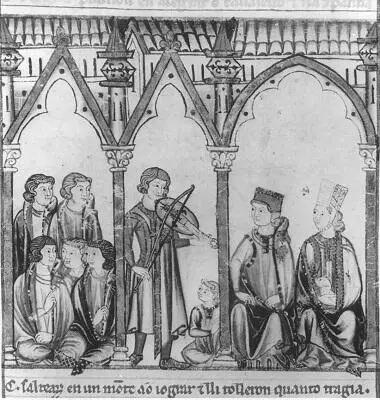 C. saltearõ en un mõte ao iograr ⁊ lli tolleron quanto tragia.